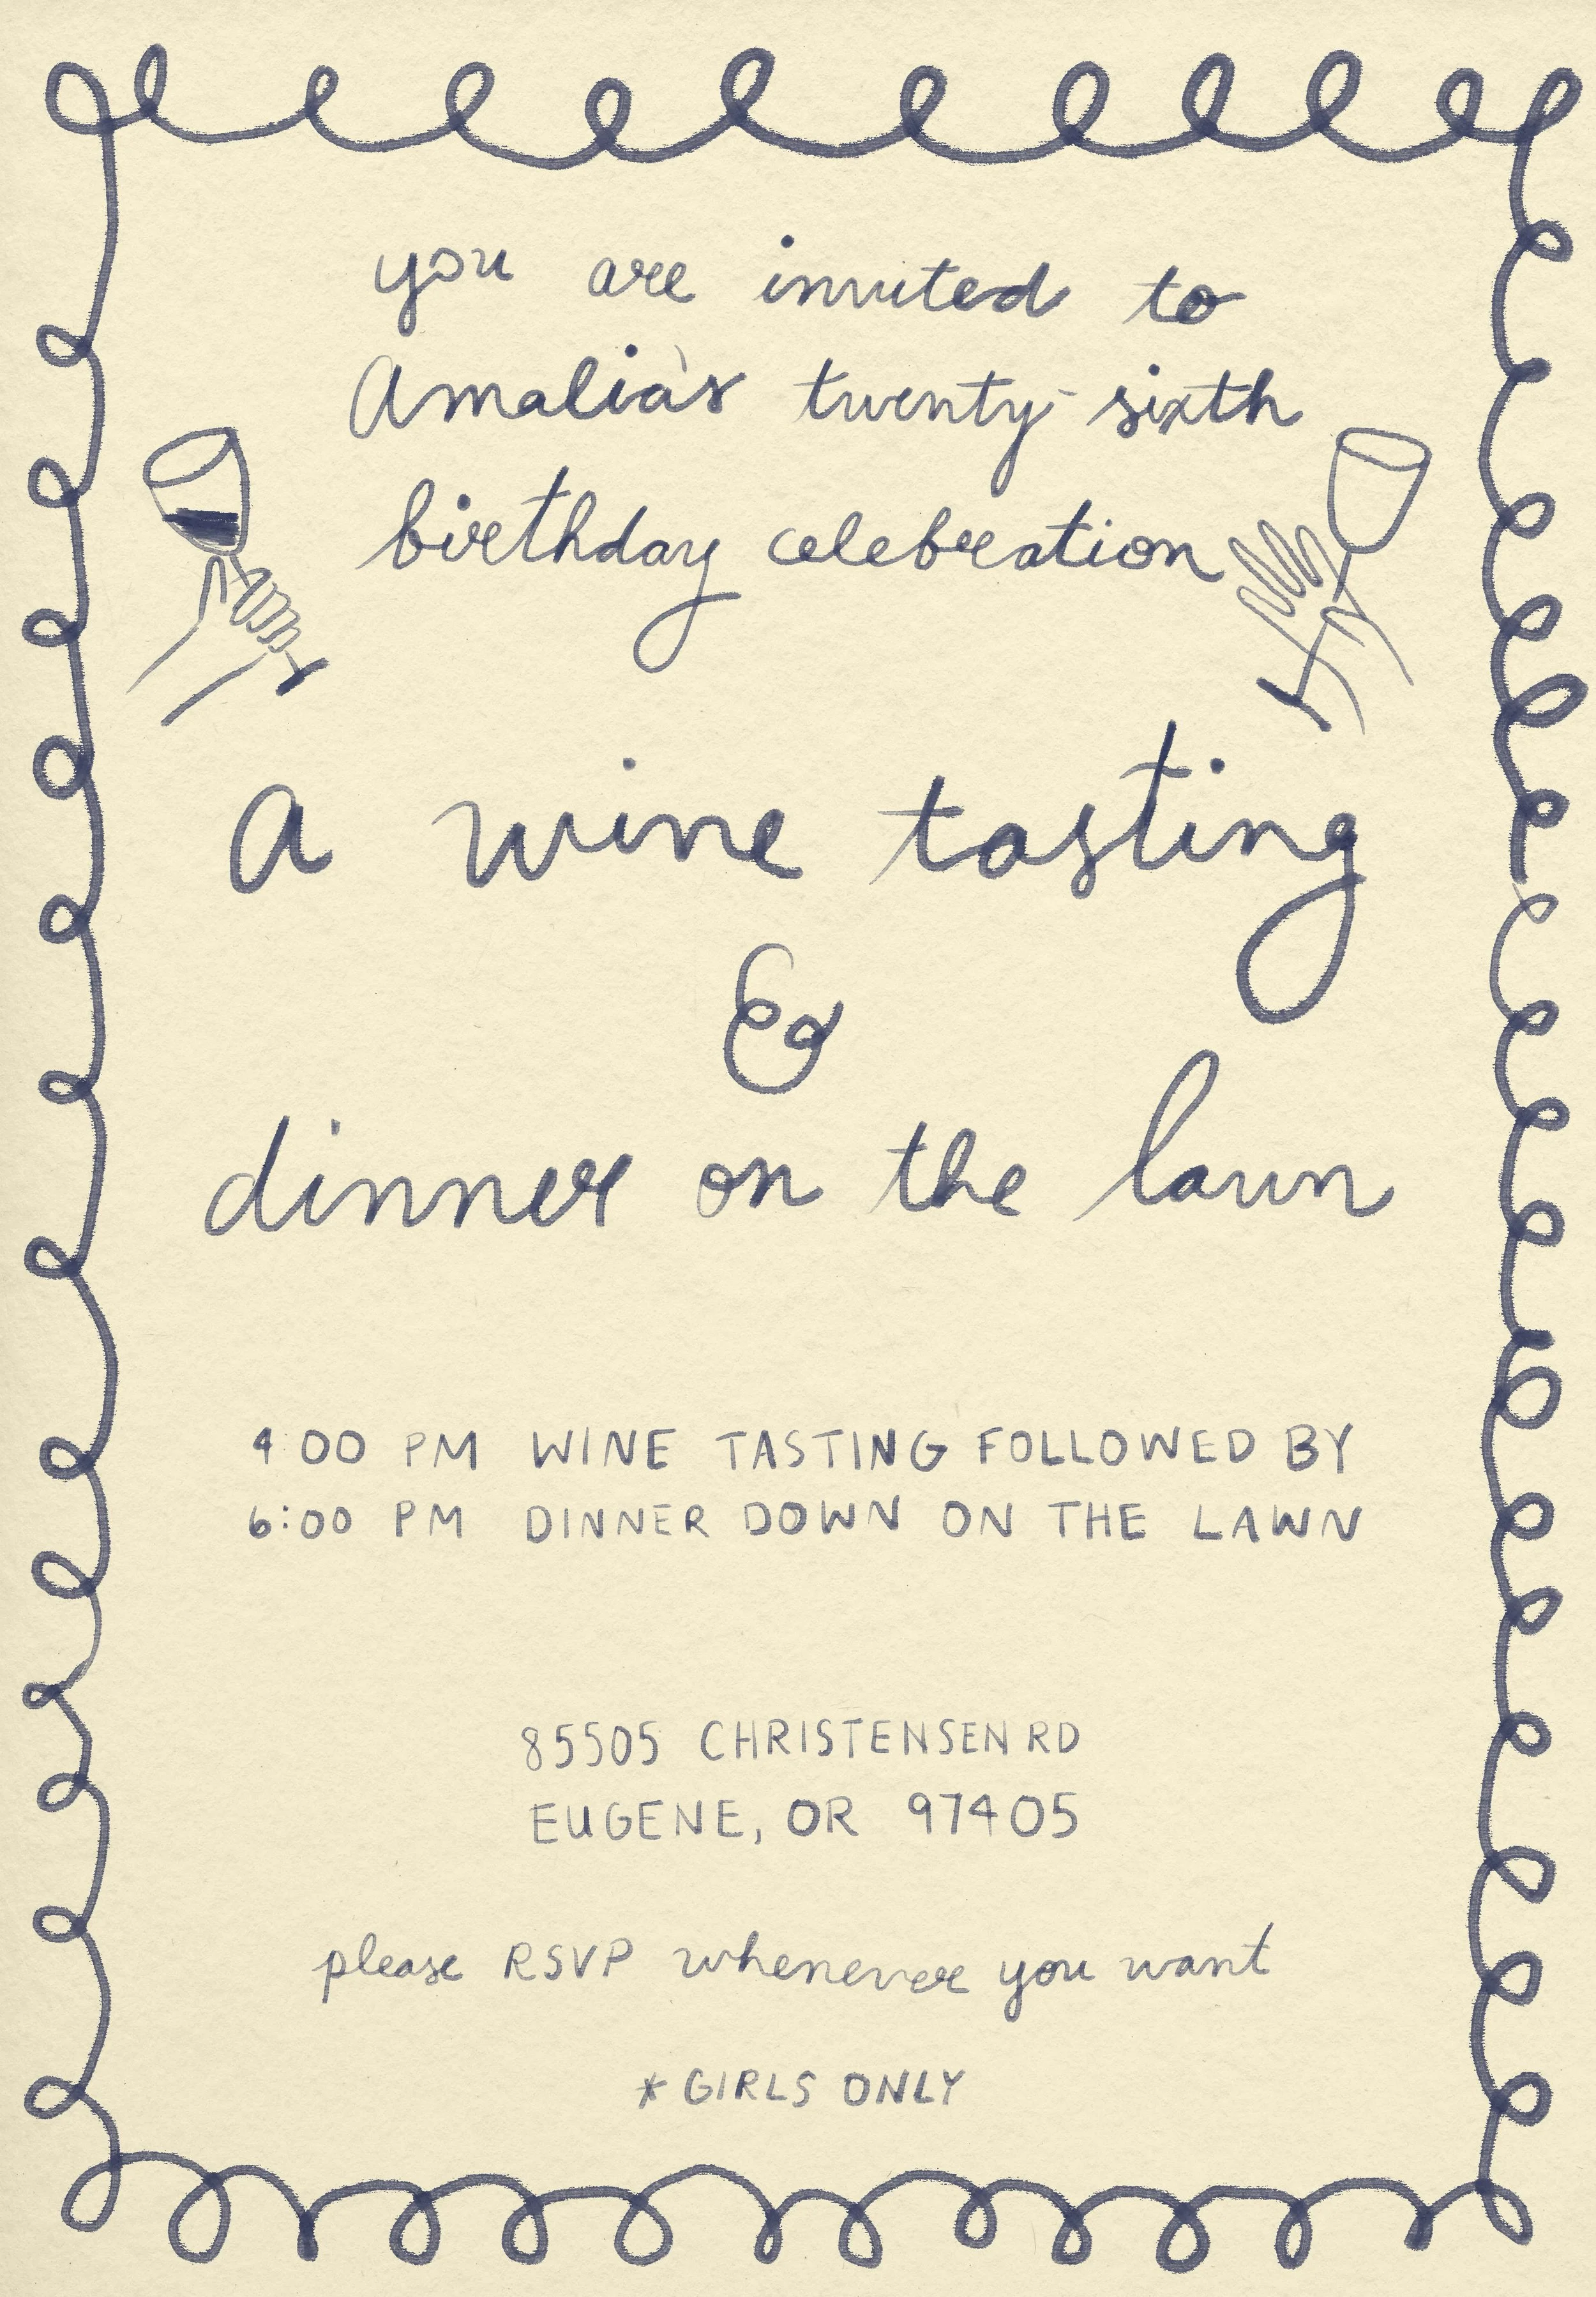 you are invited to
Amalia's twenty-sixth
birthday celebration
a wine tasting
&
dinner on the lawn
4:00 PM WINE TASTING FOLLOWED BY
6:00 PM DINNER DOWN ON THE LAWN
85505 CHRISTENSEN RD
EUGENE, OR 97405
please RSVP whenever you want
*GIRLS ONLY